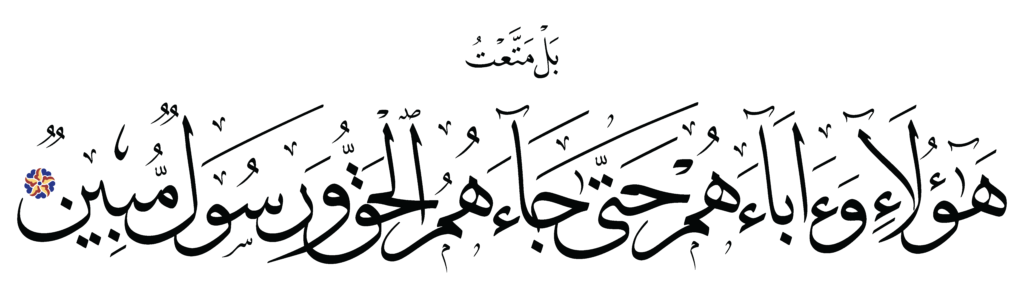 بَلْ مَتَّعْتُ
هَٰٓؤُلَآءِ وَءَابَآءَهُمْ حَتَّىٰ جَآءَهُمُ ٱلْحَقُّ وَرَسُولٌ مُّبِينٌ